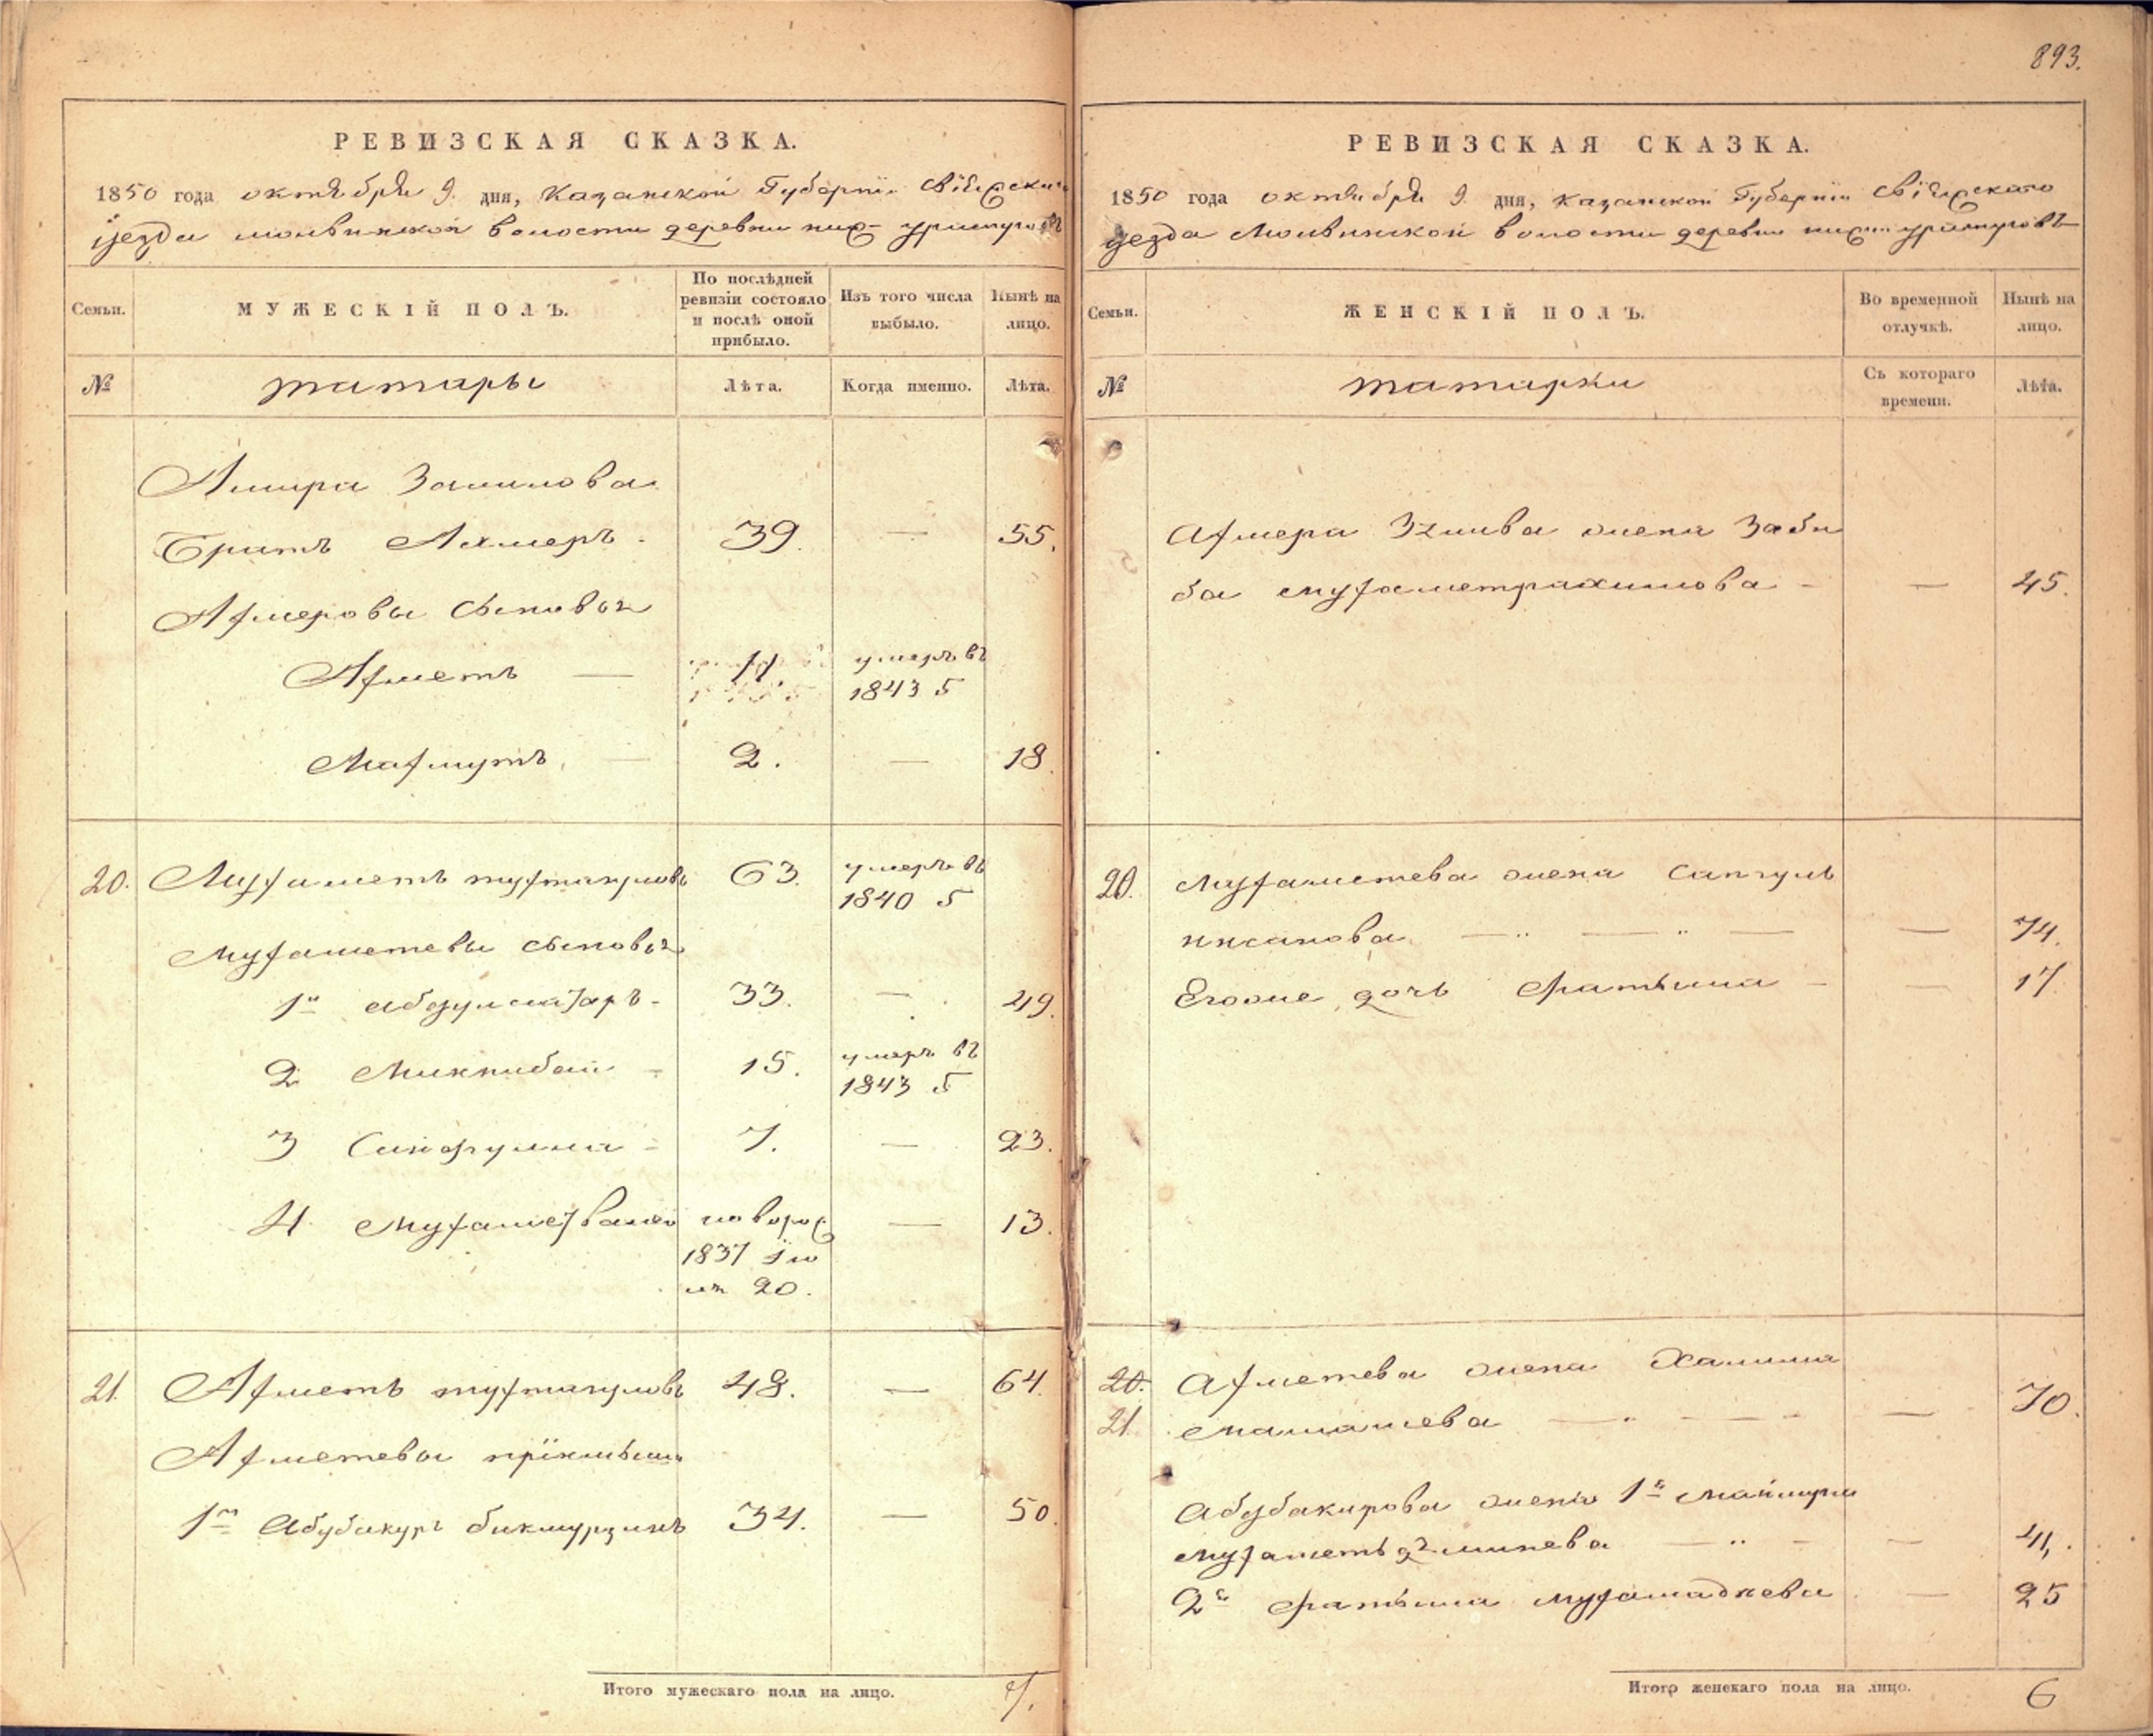 893.
РЕВИЗСКАЯ СКАЗКА.
1850 года октября 9. дня, Казанской Губернiи Свiяжскаго
уезда молвинской волости деревни ниж-
Семьи.
МУЖЕСКІЙ ПОЛЪ.
По послѣдней ревизіи состояло и послѣ оной прибыло.
Изъ того числа выбыло.
Нынѣ на лицо.
№
татары
Лѣта.
Когда именно.
Лѣта.
Амира
Братъ Ахмеръ 39. — 55.
Ахмеровы сыновья
Ахметъ — 11. умеръ въ
1843 г
Махмутъ. — 2. — 18.
20. Мухаметъ 63. умеръ въ
1840 г
Мухаметевы сыновья
1й абдулсатаръ - 33. — 49.
2 15. умеръ въ
1843 г
3 Сайфулла - 7. — 23.
4. Мухаметвалей новорож — 13.
1837 iю
ля 20.
21. Ахметъ 48. — 64.
Ахметевы
1й Абубакуръ бикмурзинъ 34. — 50.
Итого мужескаго пола на лицо. 7.
РЕВИЗСКАЯ СКАЗКА.
1850 года октября 9 дня, казанской Губернiи Свiяжскаго
уезда Молвинской волости деревни
Семьи.
ЖЕНСКІЙ ПОЛЪ.
Во временной отлучкѣ.
Нынѣ на лицо.
№
татарки
Съ котораго времени.
Лѣта.
Ахмера жена Заби
ба мухаметрахимова - — 45.
20. Мухаметева жена Сапгуль
— — — — 74.
Егоже дочь Фатыма - — 17
20. Ахметева жена Халима
21. — — 70.
Абубакирова жена 1я
— - — 41.
2я Фатыма — 25
Итого женскаго пола на лицо. 6